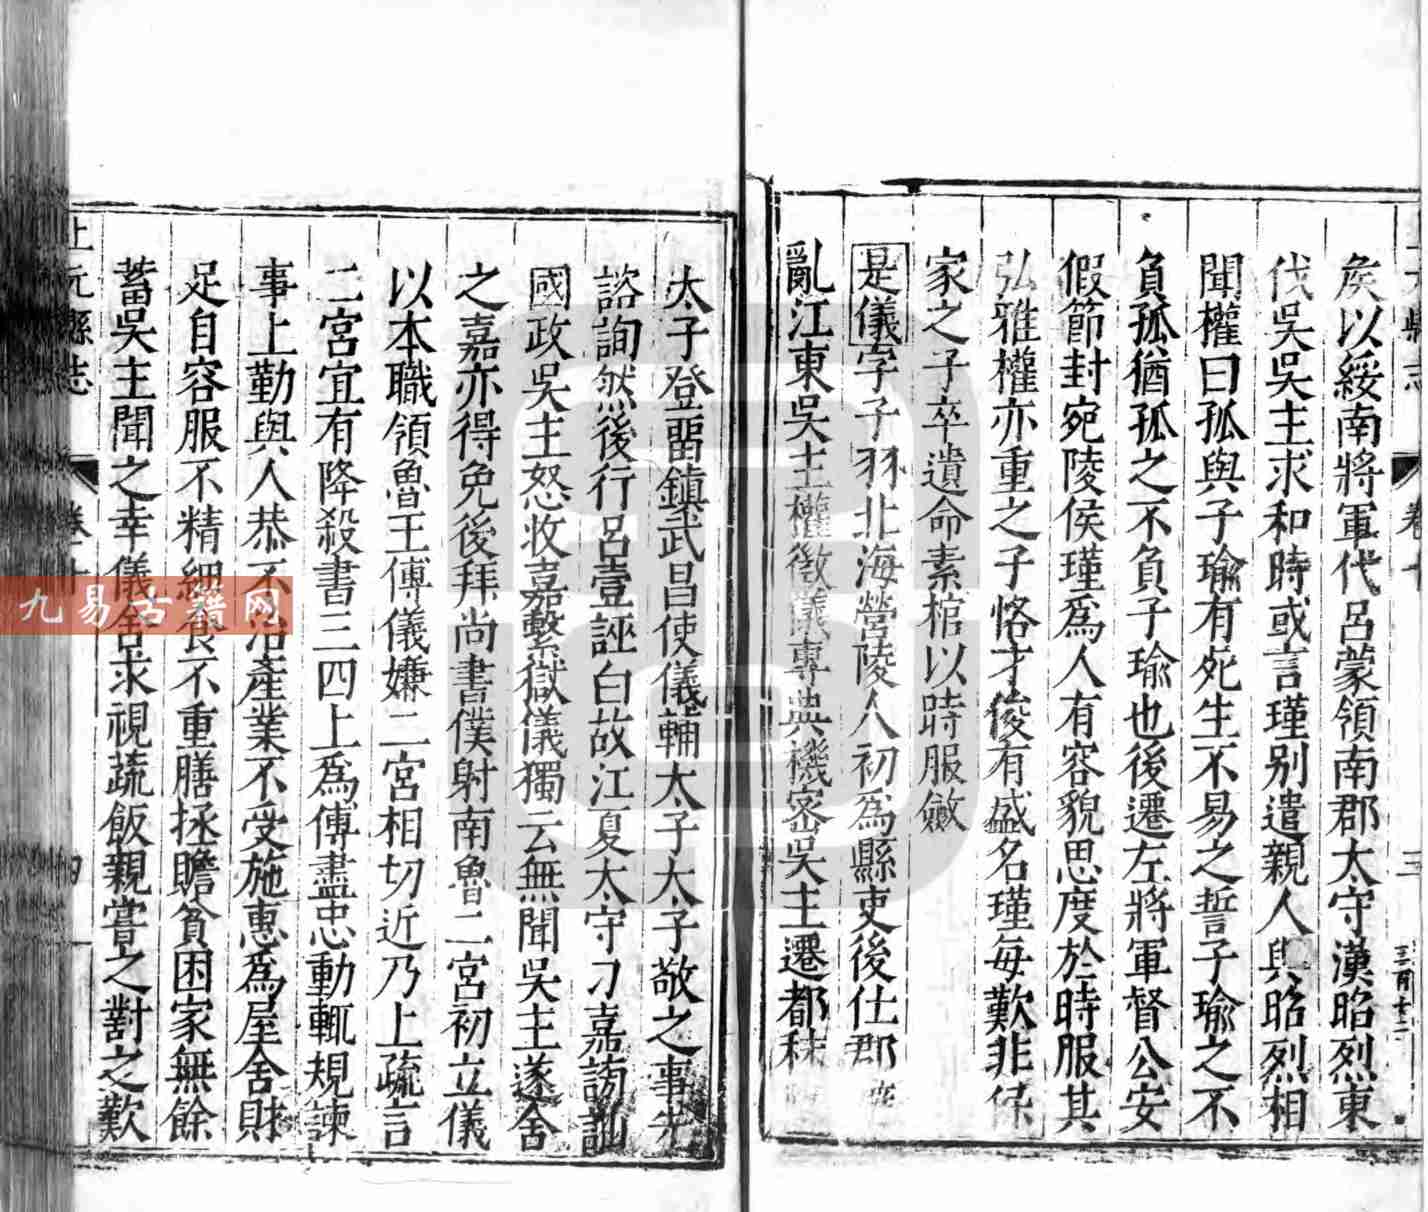 矦以綏南將軍代呂蒙領南郡太守漢昭烈東
伐吳吳主求和時或言瑾别遣親人與昭烈相
聞權曰孤與子瑜有死生不易之誓子瑜之不
負孤猶孤之不負子瑜也後遷左將軍督公安
假節封宛陵侯瑾爲人有容貌思度於時服其
弘雅權亦重之子恪才俊有盛名瑾毎歎非保
家之子卒遺命素棺以時服斂
是儀字子羽北海營陵人初爲縣吏後仕郡
亂江東吳主權徵儀專典機密吳主遷都秣
太子登畱鎮武昌使儀輔太子太子敬之事先
諮詢然後行呂壹誣白故江夏太守刁嘉謗訕
國政吳主怒收嘉繫獄儀獨云無聞吳主遂舍
之嘉亦得免後拜尚書僕射南魯二宮初立儀
以本職領魯王傅儀嫌二宮相切近乃上疏言
二宮宜有降殺書三四上爲傅盡忠動輒規諫
事上勤與人恭不治產業不受施惠爲屋舍財
足自容服不精細食不重膳拯贍貧困家無餘
蓄吳主聞之幸儀舍求視蔬飯親嘗之對之歎
上元縣志 卷十 四
卷十 三
九易古籍网